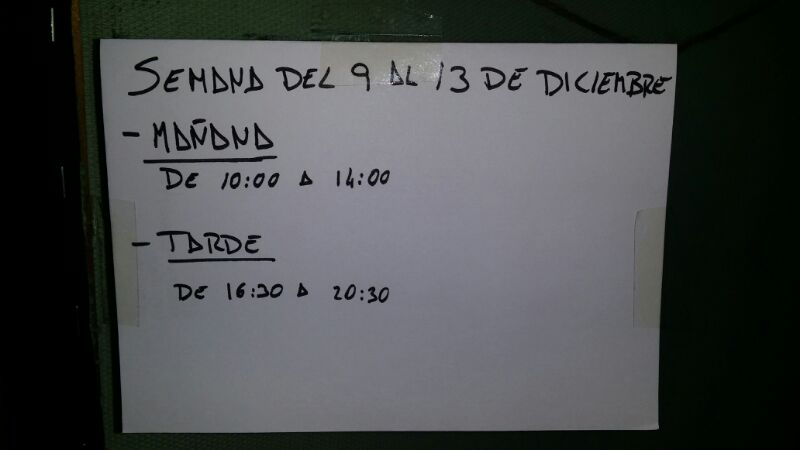 SEMANA DEL 9 AL 13 DE DICIEMBRE
- MAÑANA
DE 10:00 A 14:00
- TARDE
DE 16:30 A 20:30